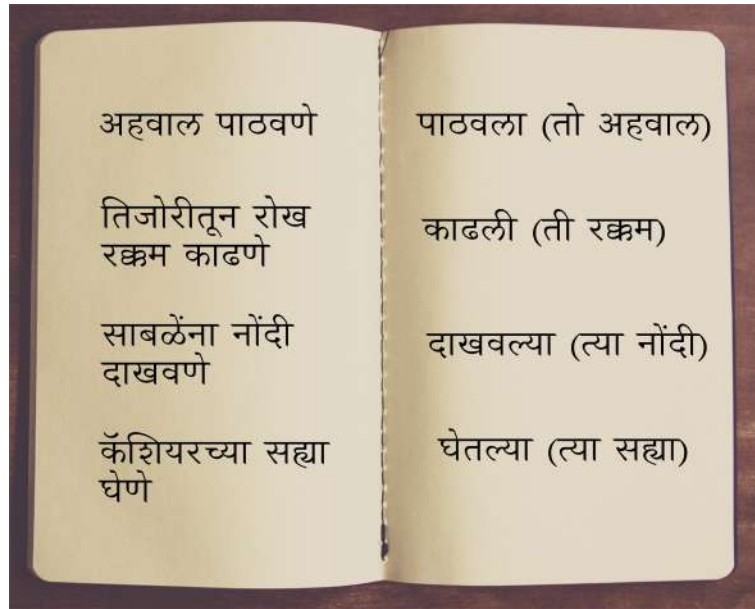 अहवाल पाठवणे
तिजोरीतून रोख
रक्कम काढणे
साबळेंना नोंदी
दाखवणे
कॅशियरच्या सह्या
घेणे
पाठवला (तो अहवाल)
काढली (ती रक्कम)
दाखवल्या (त्या नोंदी)
घेतल्या (त्या सह्या)